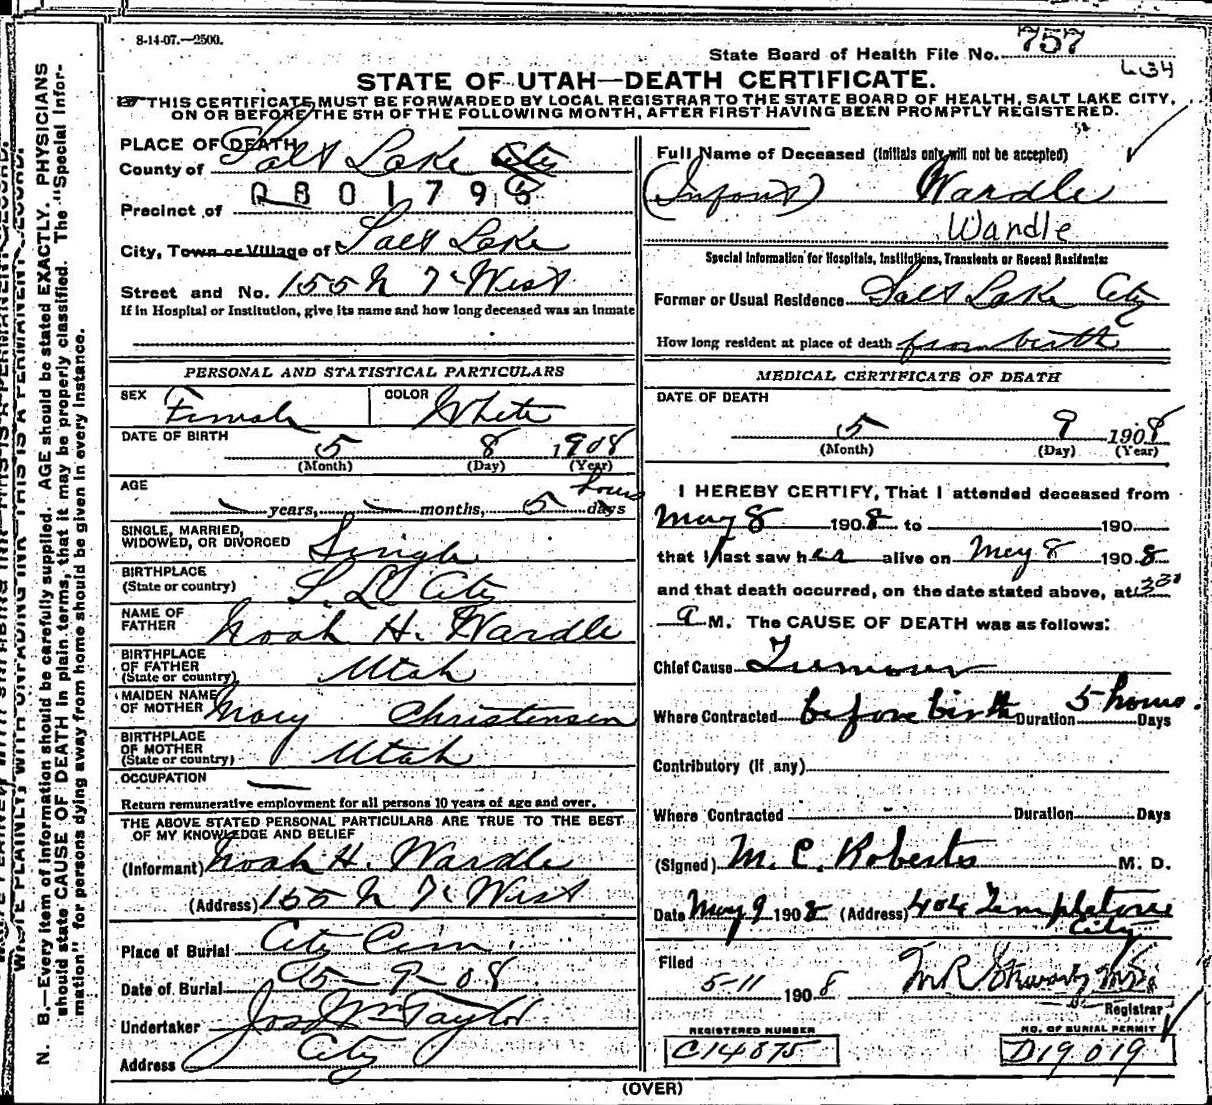 8-14-07.—2500.
State Board of Health File No. 757
634
STATE OF UTAH—DEATH CERTIFICATE.
THIS CERTIFICATE MUST BE FORWARDED BY LOCAL REGISTRAR TO THE STATE BOARD OF HEALTH, SALT LAKE CITY,
ON OR BEFORE THE 5TH OF THE FOLLOWING MONTH, AFTER FIRST HAVING BEEN PROMPTLY REGISTERED.
N. B.—Every item of information should be carefully supplied. AGE should be stated EXACTLY. PHYSICIANS
should state CAUSE OF DEATH in plain terms, that it may be properly classified. The "Special Infor-
mation" for persons dying away from home should be given in every instance.
PLACE OF DEATH
County of Salt Lake City
Precinct of
City, Town or Village of Salt Lake
Street and No. 155 N 7th West
If in Hospital or Institution, give its name and how long deceased was an inmate
PERSONAL AND STATISTICAL PARTICULARS
SEX Female COLOR White
DATE OF BIRTH
5 8 1908
(Month) (Day) (Year)
AGE hours
years, months, 5 days
SINGLE, MARRIED,
WIDOWED, OR DIVORCED Single
BIRTHPLACE
(State or country) S. L. City
NAME OF
FATHER Noah H. Wardle
BIRTHPLACE
OF FATHER
(State or country) Utah
MAIDEN NAME
OF MOTHER Mary Christensen
BIRTHPLACE
OF MOTHER
(State or country) Utah
OCCUPATION
Return remunerative employment for all persons 10 years of age and over.
THE ABOVE STATED PERSONAL PARTICULARS ARE TRUE TO THE BEST
OF MY KNOWLEDGE AND BELIEF
(Informant) Noah H. Wardle
(Address) 155 N 7th West
Place of Burial City Cem.
Date of Burial 5-9-08
Undertaker Jos Wm Taylor
Address City
Full Name of Deceased (Initials only will not be accepted)
(Infant) Wardle
Wardle
Special Information for Hospitals, Institutions, Transients or Recent Residents:
Former or Usual Residence Salt Lake City
How long resident at place of death from birth
MEDICAL CERTIFICATE OF DEATH
DATE OF DEATH
5 9 1908
(Month) (Day) (Year)
I HEREBY CERTIFY, That I attended deceased from
May 8 1908 to 190
that I last saw her alive on May 8 1908
and that death occurred, on the date stated above, at
a M. The CAUSE OF DEATH was as follows:
Chief Cause Tumour
Where Contracted before birth Duration 5 hours. Days
Contributory (if any)
Where Contracted Duration Days
(Signed) M. C. Roberts M. D.
Date May 9 1908 (Address) 404 Templeton
City
Filed
5-11 1908
Registrar
REGISTERED NUMBER
C14875
NO. OF BURIAL PERMIT
D19019
(OVER)